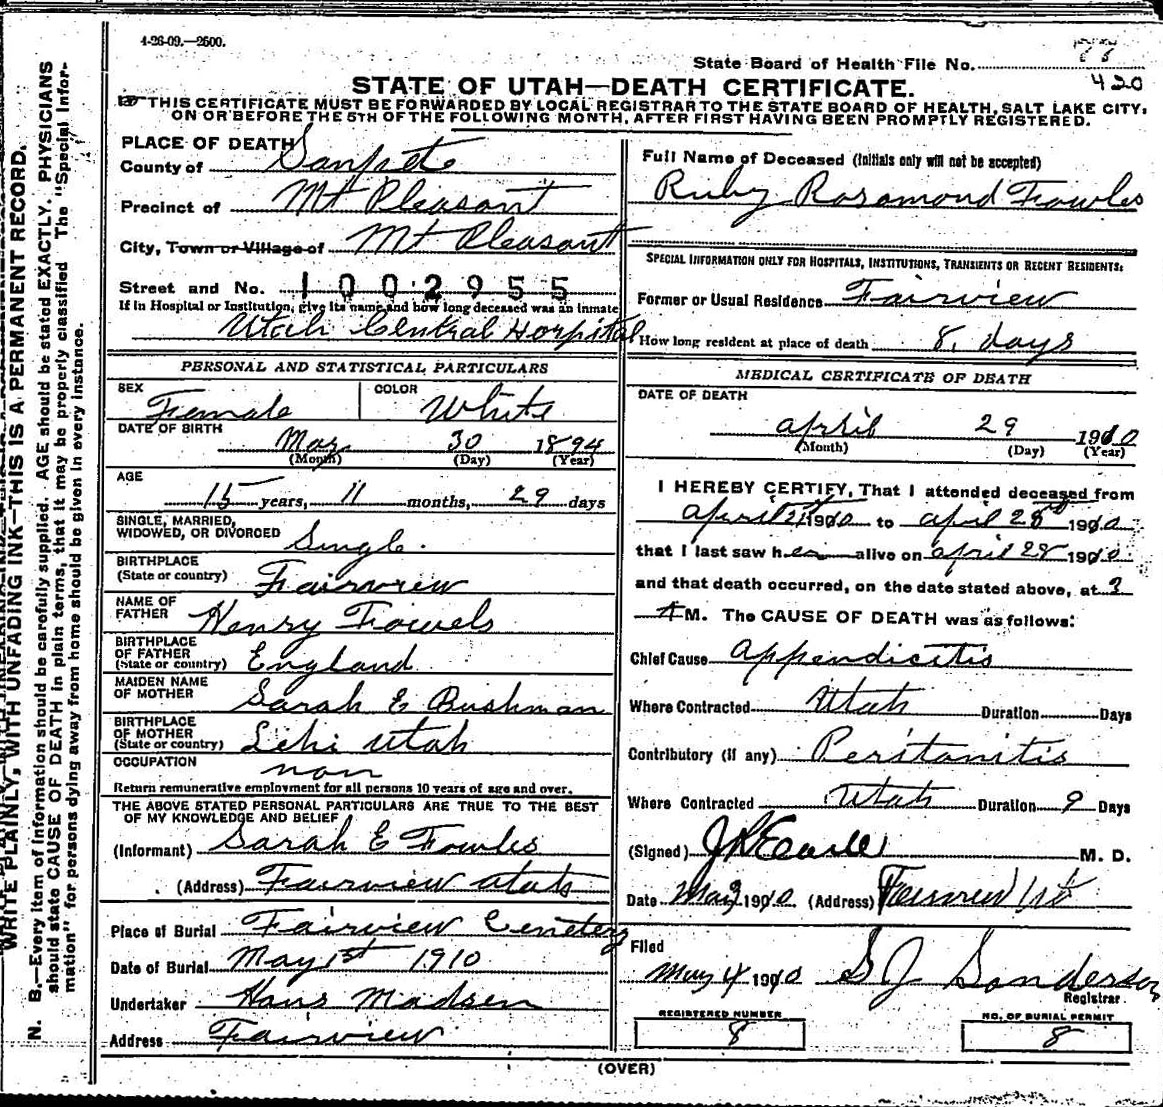 4-26-09.—2500.
State Board of Health File No. 77
420
STATE OF UTAH—DEATH CERTIFICATE.
THIS CERTIFICATE MUST BE FORWARDED BY LOCAL REGISTRAR TO THE STATE BOARD OF HEALTH, SALT LAKE CITY,
ON OR BEFORE THE 5TH OF THE FOLLOWING MONTH, AFTER FIRST HAVING BEEN PROMPTLY REGISTERED.
PLACE OF DEATH
County of Sanpete
Precinct of Mt Pleasant
City, Town or Village of Mt Pleasant
Street and No. 1002955
If in Hospital or Institution, give its name and how long deceased was an inmate
Utah Central Hospital
PERSONAL AND STATISTICAL PARTICULARS
SEX Female
COLOR White
DATE OF BIRTH May 30 1894
(Month) (Day) (Year)
AGE
15 years, 11 months, 29 days
SINGLE, MARRIED,
WIDOWED, OR DIVORCED Single.
BIRTHPLACE
(State or country) Fairview
NAME OF
FATHER Henry Fowels
BIRTHPLACE
OF FATHER
(State or country) England
MAIDEN NAME
OF MOTHER Sarah E Bushman
BIRTHPLACE
OF MOTHER
(State or country) Lehi Utah
OCCUPATION non
Return remunerative employment for all persons 10 years of age and over.
THE ABOVE STATED PERSONAL PARTICULARS ARE TRUE TO THE BEST
OF MY KNOWLEDGE AND BELIEF
(Informant) Sarah E Fowles
(Address) Fairview Utah
Place of Burial Fairview Cemetery
Date of Burial May 1st 1910
Undertaker Hans Madsen
Address Fairview
Full Name of Deceased (Initials only will not be accepted)
Ruby Rosamond Fowles
SPECIAL INFORMATION ONLY FOR HOSPITALS, INSTITUTIONS, TRANSIENTS OR RECENT RESIDENTS:
Former or Usual Residence Fairview
How long resident at place of death 8. days
MEDICAL CERTIFICATE OF DEATH
DATE OF DEATH
April 29 1910
(Month) (Day) (Year)
I HEREBY CERTIFY, That I attended deceased from
April 21 1910 to April 28 1910
that I last saw her alive on April 28 1910
and that death occurred, on the date stated above, at 3
A M. The CAUSE OF DEATH was as follows:
Chief Cause Appendicitis
Where Contracted Utah Duration Days
Contributory (if any) Peritonitis
Where Contracted Utah Duration 9 Days
(Signed) M. D.
Date May 3 1910 (Address) Fairview Ut
Filed
May 4 1910 S J Sanderson
Registrar.
REGISTERED NUMBER
8
NO. OF BURIAL PERMIT
8
(OVER)
WRITE PLAINLY, WITH UNFADING INK—THIS IS A PERMANENT RECORD.
N. B.—Every item of information should be carefully supplied. AGE should be stated EXACTLY. PHYSICIANS
should state CAUSE OF DEATH in plain terms, that it may be properly classified. The "Special Infor-
mation" for persons dying away from home should be given in every instance.